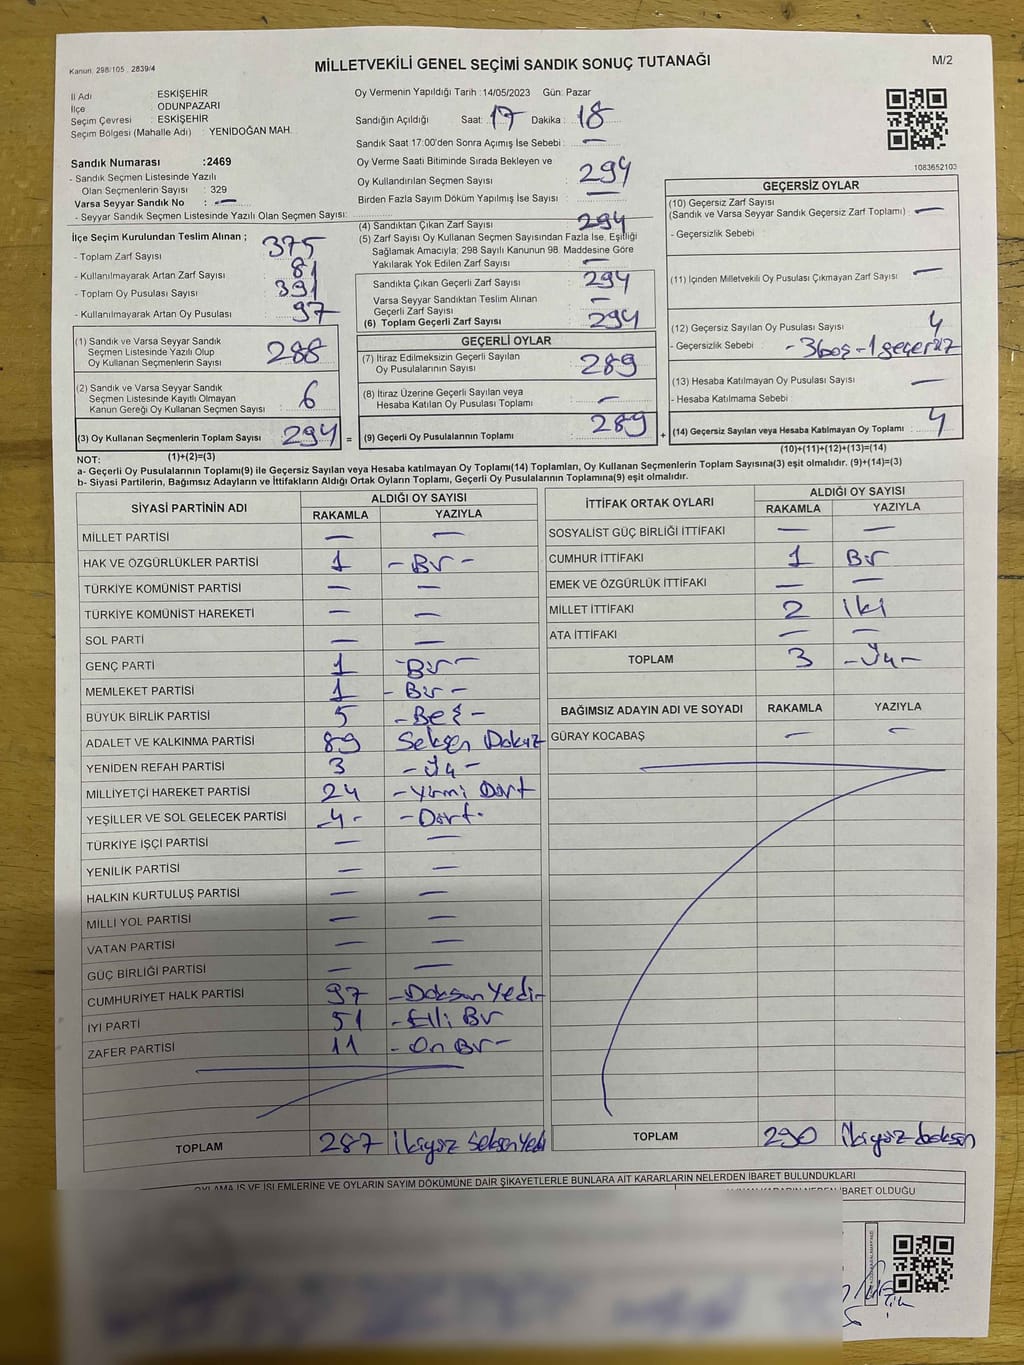 Kanun: 298/105 , 2839/4
MİLLETVEKİLİ GENEL SEÇİMİ SANDIK SONUÇ TUTANAĞI
M/2
İl Adı : ESKİŞEHİR
İlçe : ODUNPAZARI
Seçim Çevresi : ESKİŞEHİR
Seçim Bölgesi (Mahalle Adı) : YENİDOĞAN MAH.
Sandık Numarası :2469
- Sandık Seçmen Listesinde Yazılı
Olan Seçmenlerin Sayısı : 329
Varsa Seyyar Sandık No : —
- Seyyar Sandık Seçmen Listesinde Yazılı Olan Seçmen Sayısı:
Oy Vermenin Yapıldığı Tarih :14/05/2023 Gün: Pazar
Sandığın Açıldığı Saat: 17 Dakika : 18
Sandık Saat 17:00'den Sonra Açımış İse Sebebi : —
Oy Verme Saati Bitiminde Sırada Bekleyen ve
Oy Kullandırılan Seçmen Sayısı : 294
Birden Fazla Sayım Döküm Yapılmış İse Sayısı : —
1083652103
İlçe Seçim Kurulundan Teslim Alınan ;
- Toplam Zarf Sayısı : 375
- Kullanılmayarak Artan Zarf Sayısı : 81
- Toplam Oy Pusulası Sayısı : 391
- Kullanılmayarak Artan Oy Pusulası : 97
(1) Sandık ve Varsa Seyyar Sandık
Seçmen Listesinde Yazılı Olup
Oy Kullanan Seçmenlerin Sayısı : 288
(2) Sandık ve Varsa Seyyar Sandık
Seçmen Listesinde Kayıtlı Olmayan
Kanun Gereği Oy Kullanan Seçmen Sayısı : 6
(3) Oy Kullanan Seçmenlerin Toplam Sayısı : 294 =
(1)+(2)=(3)
(4) Sandıktan Çıkan Zarf Sayısı : 294
(5) Zarf Sayısı Oy Kullanan Seçmen Sayısından Fazla İse, Eşitliği
Sağlamak Amacıyla; 298 Sayılı Kanunun 98. Maddesine Göre
Yakılarak Yok Edilen Zarf Sayısı : —
Sandıkta Çıkan Geçerli Zarf Sayısı : 294
Varsa Seyyar Sandıktan Teslim Alınan
Geçerli Zarf Sayısı : —
(6) Toplam Geçerli Zarf Sayısı : 294
GEÇERLİ OYLAR
(7) İtiraz Edilmeksizin Geçerli Sayılan
Oy Pusulalarının Sayısı : 289
(8) İtiraz Üzerine Geçerli Sayılan veya
Hesaba Katılan Oy Pusulası Toplamı : —
(9) Geçerli Oy Pusulalarının Toplamı : 289 +
GEÇERSİZ OYLAR
(10) Geçersiz Zarf Sayısı
(Sandık ve Varsa Seyyar Sandık Geçersiz Zarf Toplamı) : —
- Geçersizlik Sebebi :
(11) İçinden Milletvekili Oy Pusulası Çıkmayan Zarf Sayısı : —
(12) Geçersiz Sayılan Oy Pusulası Sayısı : 4
- Geçersizlik Sebebi : -3 boş -1 geçersiz
(13) Hesaba Katılmayan Oy Pusulası Sayısı : —
- Hesaba Katılmama Sebebi :
(14) Geçersiz Sayılan veya Hesaba Katılmayan Oy Toplamı : 4
(10)+(11)+(12)+(13)=(14)
NOT:
a- Geçerli Oy Pusulalarının Toplamı(9) ile Geçersiz Sayılan veya Hesaba katılmayan Oy Toplamı(14) Toplamları, Oy Kullanan Seçmenlerin Toplam Sayısına(3) eşit olmalıdır. (9)+(14)=(3)
b- Siyasi Partilerin, Bağımsız Adayların ve İttifakların Aldığı Ortak Oyların Toplamı, Geçerli Oy Pusulalarının Toplamına(9) eşit olmalıdır.
SİYASİ PARTİNİN ADI ALDIĞI OY SAYISI
RAKAMLA YAZIYLA
MİLLET PARTİSİ — —
HAK VE ÖZGÜRLÜKLER PARTİSİ 1 -Bir-
TÜRKİYE KOMÜNİST PARTİSİ — —
TÜRKİYE KOMÜNİST HAREKETİ — —
SOL PARTİ — —
GENÇ PARTİ 1 -Bir-
MEMLEKET PARTİSİ 1 -Bir-
BÜYÜK BİRLİK PARTİSİ 5 -Beş-
ADALET VE KALKINMA PARTİSİ 89 Seksen Dokuz
YENİDEN REFAH PARTİSİ 3 -Üç-
MİLLİYETÇİ HAREKET PARTİSİ 24 -Yirmi Dört
YEŞİLLER VE SOL GELECEK PARTİSİ -4- -Dört-
TÜRKİYE İŞÇİ PARTİSİ — —
YENİLİK PARTİSİ — —
HALKIN KURTULUŞ PARTİSİ — —
MİLLİ YOL PARTİSİ — —
VATAN PARTİSİ — —
GÜÇ BİRLİĞİ PARTİSİ — —
CUMHURİYET HALK PARTİSİ 97 -Doksan Yedi-
İYİ PARTİ 51 -Elli Bir
ZAFER PARTİSİ 11 -On Bir-
TOPLAM 287 İkiyüz Seksen Yedi
İTTİFAK ORTAK OYLARI ALDIĞI OY SAYISI
RAKAMLA YAZIYLA
SOSYALİST GÜÇ BİRLİĞİ İTTİFAKI — —
CUMHUR İTTİFAKI 1 Bir
EMEK VE ÖZGÜRLÜK İTTİFAKI — —
MİLLET İTTİFAKI 2 İki
ATA İTTİFAKI — —
TOPLAM 3 -Üç-
BAĞIMSIZ ADAYIN ADI VE SOYADI RAKAMLA YAZIYLA
GÜRAY KOCABAŞ — —
TOPLAM 290 İkiyüz doksan
OYLAMA İŞ VE İŞLEMLERİNE VE OYLARIN SAYIM DÖKÜMÜNE DAİR ŞİKAYETLERLE BUNLARA AİT KARARLARIN NELERDEN İBARET BULUNDUKLARI
İBARET OLDUĞU